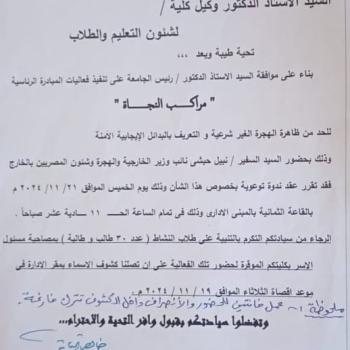 السيد الاستاذ الدكتور وكيل كلية /
لشئون التعليم والطلاب
تحية طيبة وبعد ،،،
بناء على موافقة السيد الاستاذ الدكتور / رئيس الجامعة على تنفيذ فعاليات المبادرة الرئاسية
" مراكب النجاة "
للحد من ظاهرة الهجرة الغير شرعية و التعريف بالبدائل الإيجابية الآمنة
وذلك بحضور السيد السفير / نبيل حبشى نائب وزير الخارجية والهجرة وشئون المصريين بالخارج
فقد تقرر عقد ندوة توعوية بخصوص هذا الشأن وذلك يوم الخميس الموافق ٢٠٢٤/١١/٢١ م
بالقاعة الثمانية بالمبنى الادارى وذلك فى تمام الساعة الحـــ ١١ ــادية عشر صباحاً .
الرجاء من سيادتكم التكرم بالتنبية على طلاب النشاط ( عدد ٣٠ طالب و طالبة ) بمصاحبة مسئول
الاسر بكليتكم الموقرة لحضور تلك الفعالية على ان تصلنا كشوف الاسماء بمقر الادارة فى
موعد اقصاة الثلاثاء الموافق ٢٠٢٤/١١/١٩ م .
ملحوظة :- عمل خانتين للحضور والأنصراف داخل الكشوف تترك فارغة .
وتفضلوا سيادتكم بقبول وافر التحية والاحترام،،،